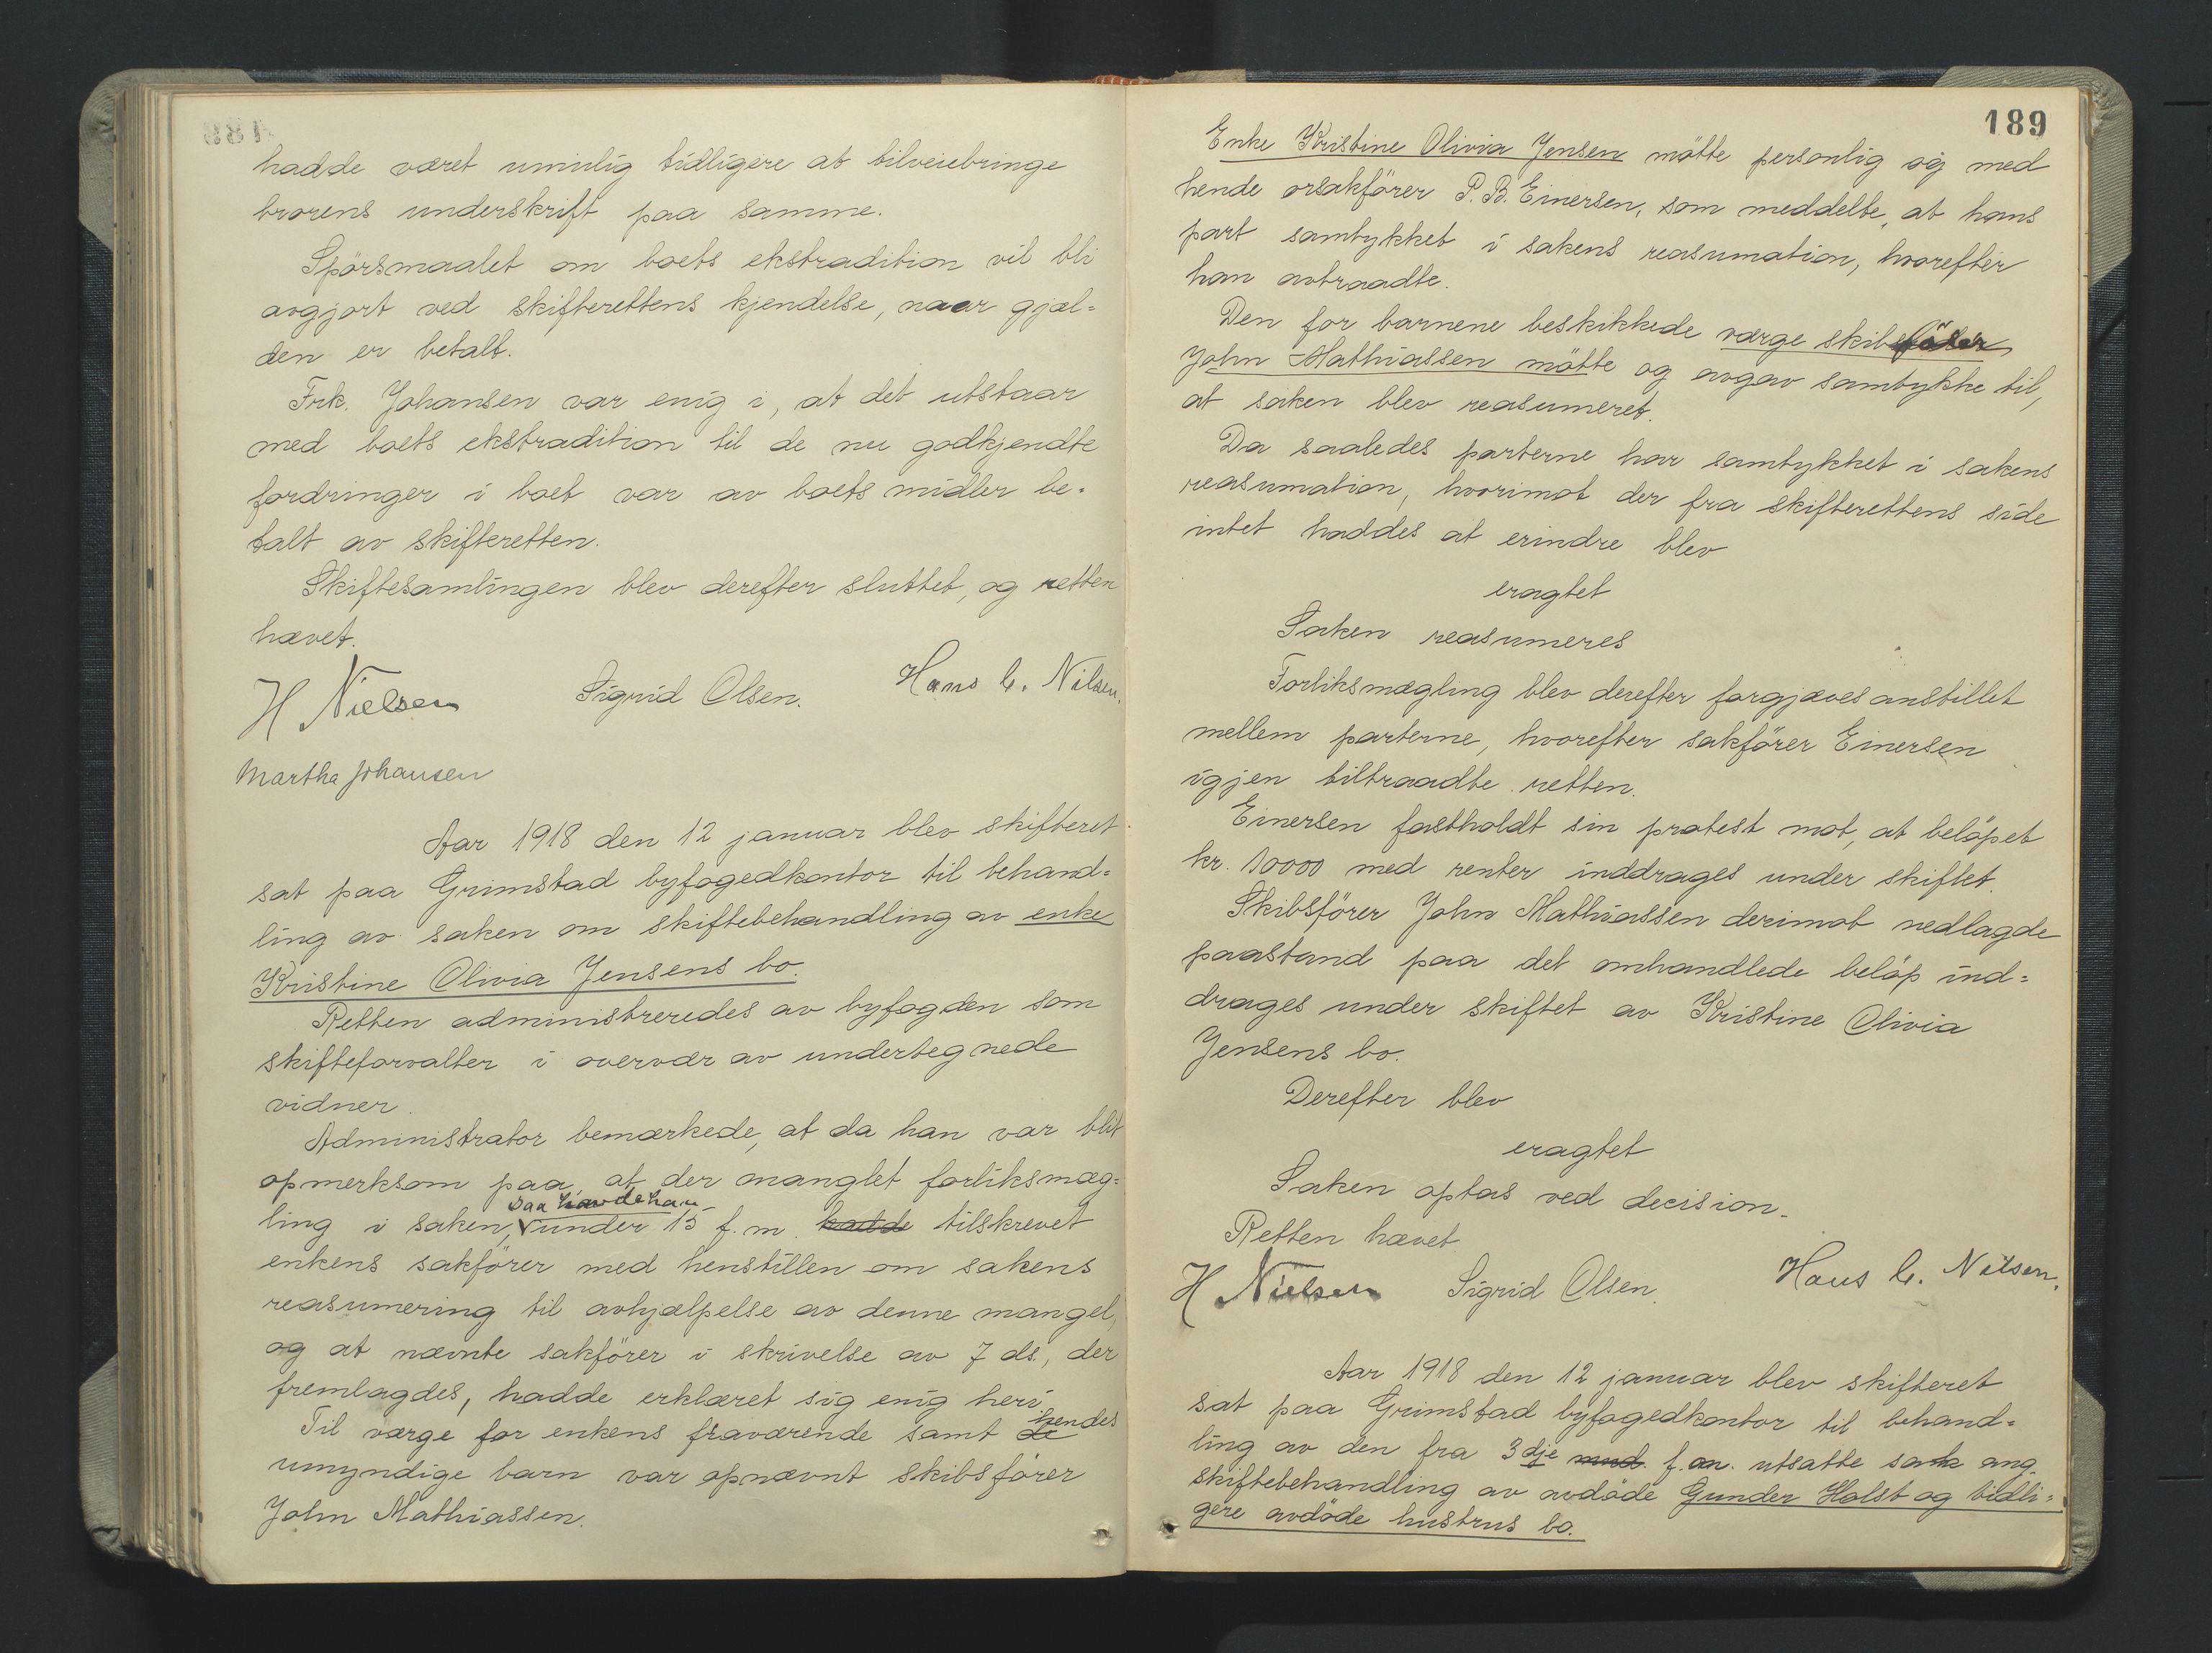 hadde været umulig tidligere at tilveiebringe
brorens underskrift paa samme.
Spörsmaalet om boets ekstradition vil bli
avgjort ved skifterettens kjendelse, naar gjæl-
den er betalt.
Frk. Johansen var enig i, at det utstaar
med boets ekstradition til de nu godkjendte
fordringer i boet var av boets midler be-
talt av skifteretten.
Skiftesamlingen blev derefter sluttet, og retten
hævet.
H Nielsen Sigrid Olsen. Hans C. Nilsen.
Martha Johansen
Aar 1918 den 12 januar blev skifteret
sat paa Grimstad byfogedkontor til behand-
ling av saken om skiftebehandling av enke
Kristine Olivia Jensens bo.
Retten administreredes av byfogden som
skifteforvalter i overvær av undertegnede
vidner.
Administrator bemærkede, at da han var blit
opmerksom paa, at der manglet forliksmæg-
saa havde han
ling i saken, under 15 f.m. hadde tilskrevet
enkens sakförer med henstillen om sakens
reasumering til avhjælpelse av denne mangel,
og at nævnte sakförer i skrivelse av 7 ds., der
fremlagdes, hadde erklæret sig enig heri.
hendes
Til værge for enkens fraværende samt de
umyndige barn var opnævnt skibsförer
John Mathiassen.
189
Enke Kristine Olivia Jensen mötte personlig og med
hende orsakförer P. B. Einersen, som meddelte, at hans
part samtykket i sakens reasumation, hvorefter
han avtraadte.
Den for barnene beskikkede værge skibsförer
John Mathiassen mötte og avgav samtykke til,
at saken blev reasumeret.
Da saaledes parterne har samtykket i sakens
reasumation, hvorimot der fra skifterettens side
intet haddes at erindre blev
eragtet
Saken reasumeres
Forliksmægling blev derefter forgjæves anstillet
mellem parterne, hvorefter sakförer Einersen
igjen tiltraadte retten.
Einersen fastholdt sin protest mot, at belöpet
kr. 10000 med renter inddrages under skiftet.
Skibsförer John Mathiassen derimot nedlagde
paastand paa det omhandlede belöp ind-
drages under skiftet av Kristine Olivia
Jensens bo.
Derefter blev
eragtet
Saken optas ved decision.
Retten hævet.
H Nielsen Sigrid Olsen. Hans C. Nilsen.
Aar 1918 den 12 januar blev skifteret
sat paa Grimstad byfogedkontor til behand-
ling av den fra 3dje mnd. f.m. utsatte sak ang.
skiftebehandling av avdöde Gunder Holst og tidli-
gere avdöde hustrus bo.